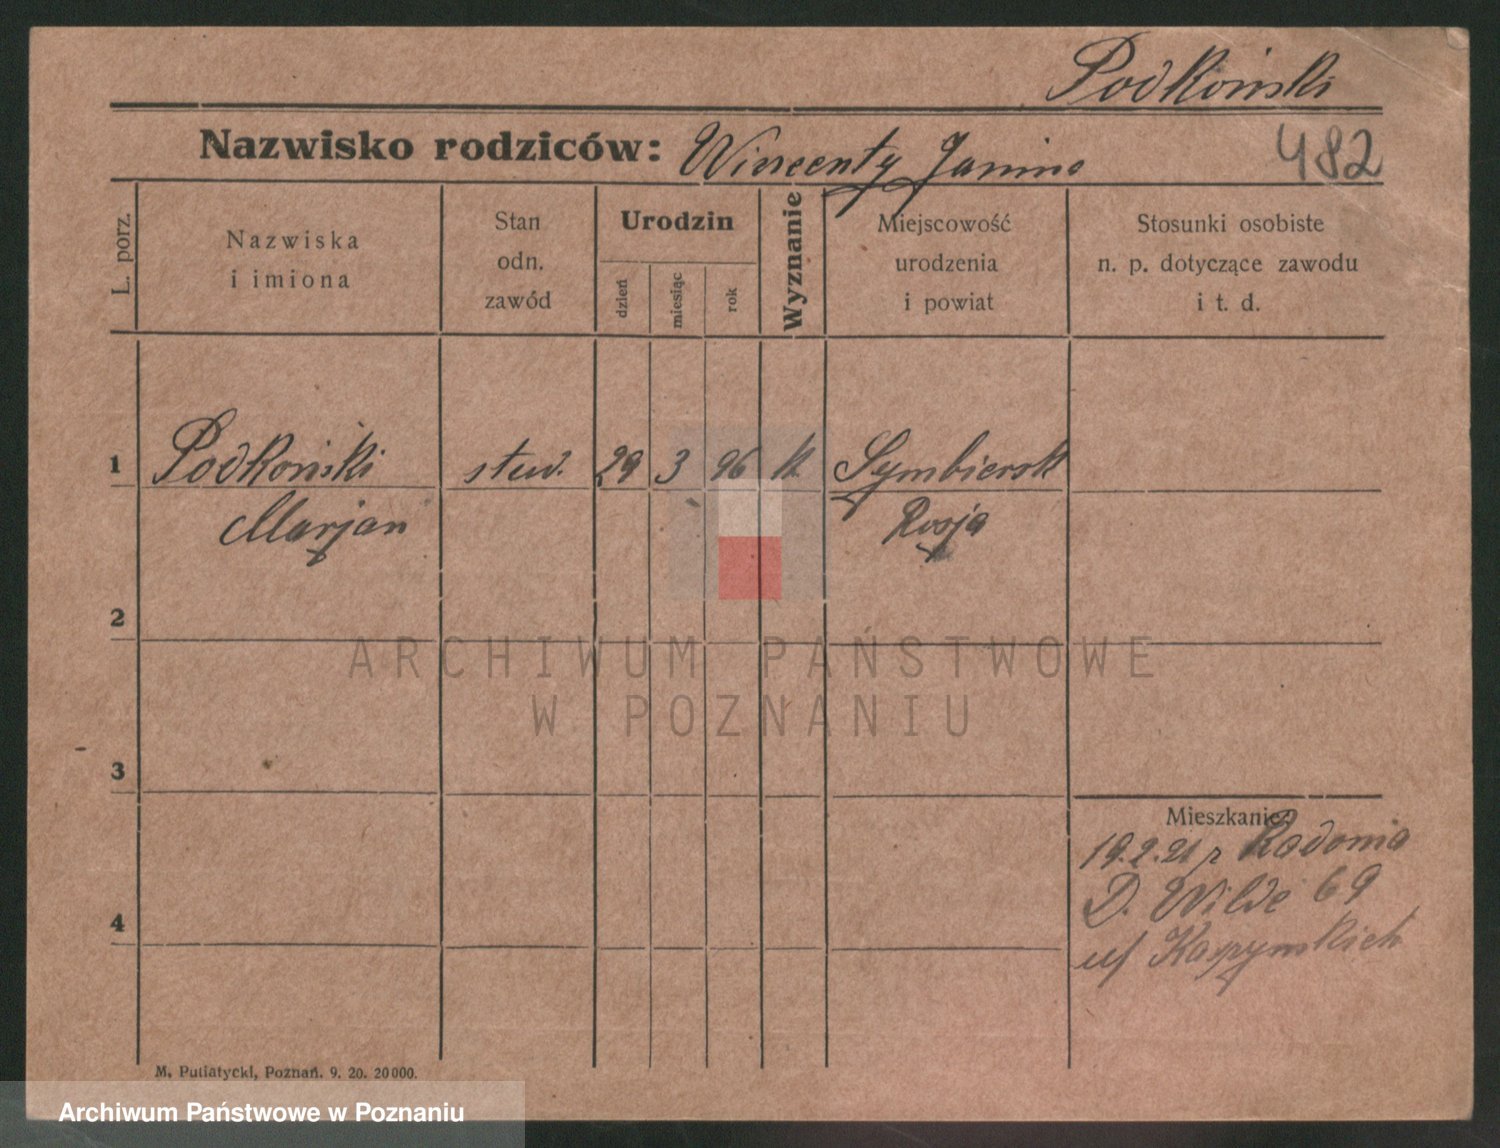 Podkoński
Nazwisko rodziców: Wincenty Janina
482
L. porz.
Nazwiska
i imiona
Stan
odn.
zawód
Urodzin
dzień
miesiąc
rok
Wyznanie
Miejscowość
urodzenia
i powiat
Stosunki osobiste
n. p. dotyczące zawodu
i t. d.
1 Podkoński stud. 29 3 96 k.
Marjan Rosja
2
3
4
Mieszkanie:
19.2.21 z Radomia
D. Wilde 69
M. Putiatycki, Poznań. 9. 20. 20000.
ARCHIWUM PAŃSTWOWE
W POZNANIU
Archiwum Państwowe w Poznaniu